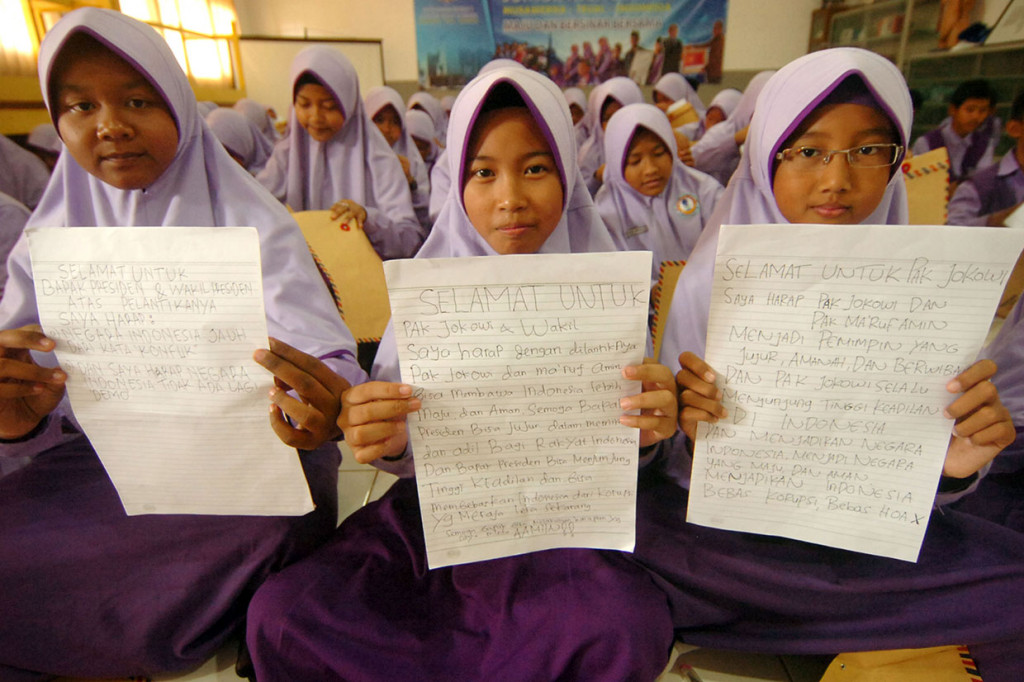 MAJU DAN BERSINAR BERSAMA
SELAMAT UNTUK
BAPAK PRESIDEN & WAKIL PRESIDEN
ATAS PELANTIKANYA
SAYA HARAP:
NEGARA INDONESIA JAUH
DARI KATA KONFLIK
DAN SAYA HARAP NEGARA
INDONESIA TIDAK ADA LAGI
DEMO
SELAMAT UNTUK
PAK JOKOWI & WAKIL
Saya harap dengan dilantiknya
Pak Jokowi dan ma'ruf amin
Bisa Membawa Indonesia lebih
Maju dan Aman Semoga Bapak
Presiden Bisa Jujur dalam
dan adil Bagi Rakyat Indonesia
Dan Bapak Presiden Bisa Menjunjung
Tinggi Keadilan dan Bisa
Membebaskan Indonesia dari Korupsi
yg Meraja lela Sekarang
AAMIIN
SELAMAT UNTUK PAK JOKOWI
SAYA HARAP PAK JOKOWI DAN
PAK MA'RUF AMIN
MENJADI PEMIMPIN YANG
JUJUR, AMANAH, DAN BERWIBA
DAN PAK JOKOWI SELALU
MENJUNJUNG TINGGI KEADILAN
DI INDONESIA
DAN MENJADIKAN NEGARA
INDONESIA MENJADI NEGARA
YANG MAJU DAN AMAN
MENJADIKAN INDONESIA
BEBAS KORUPSI, BEBAS HOAX